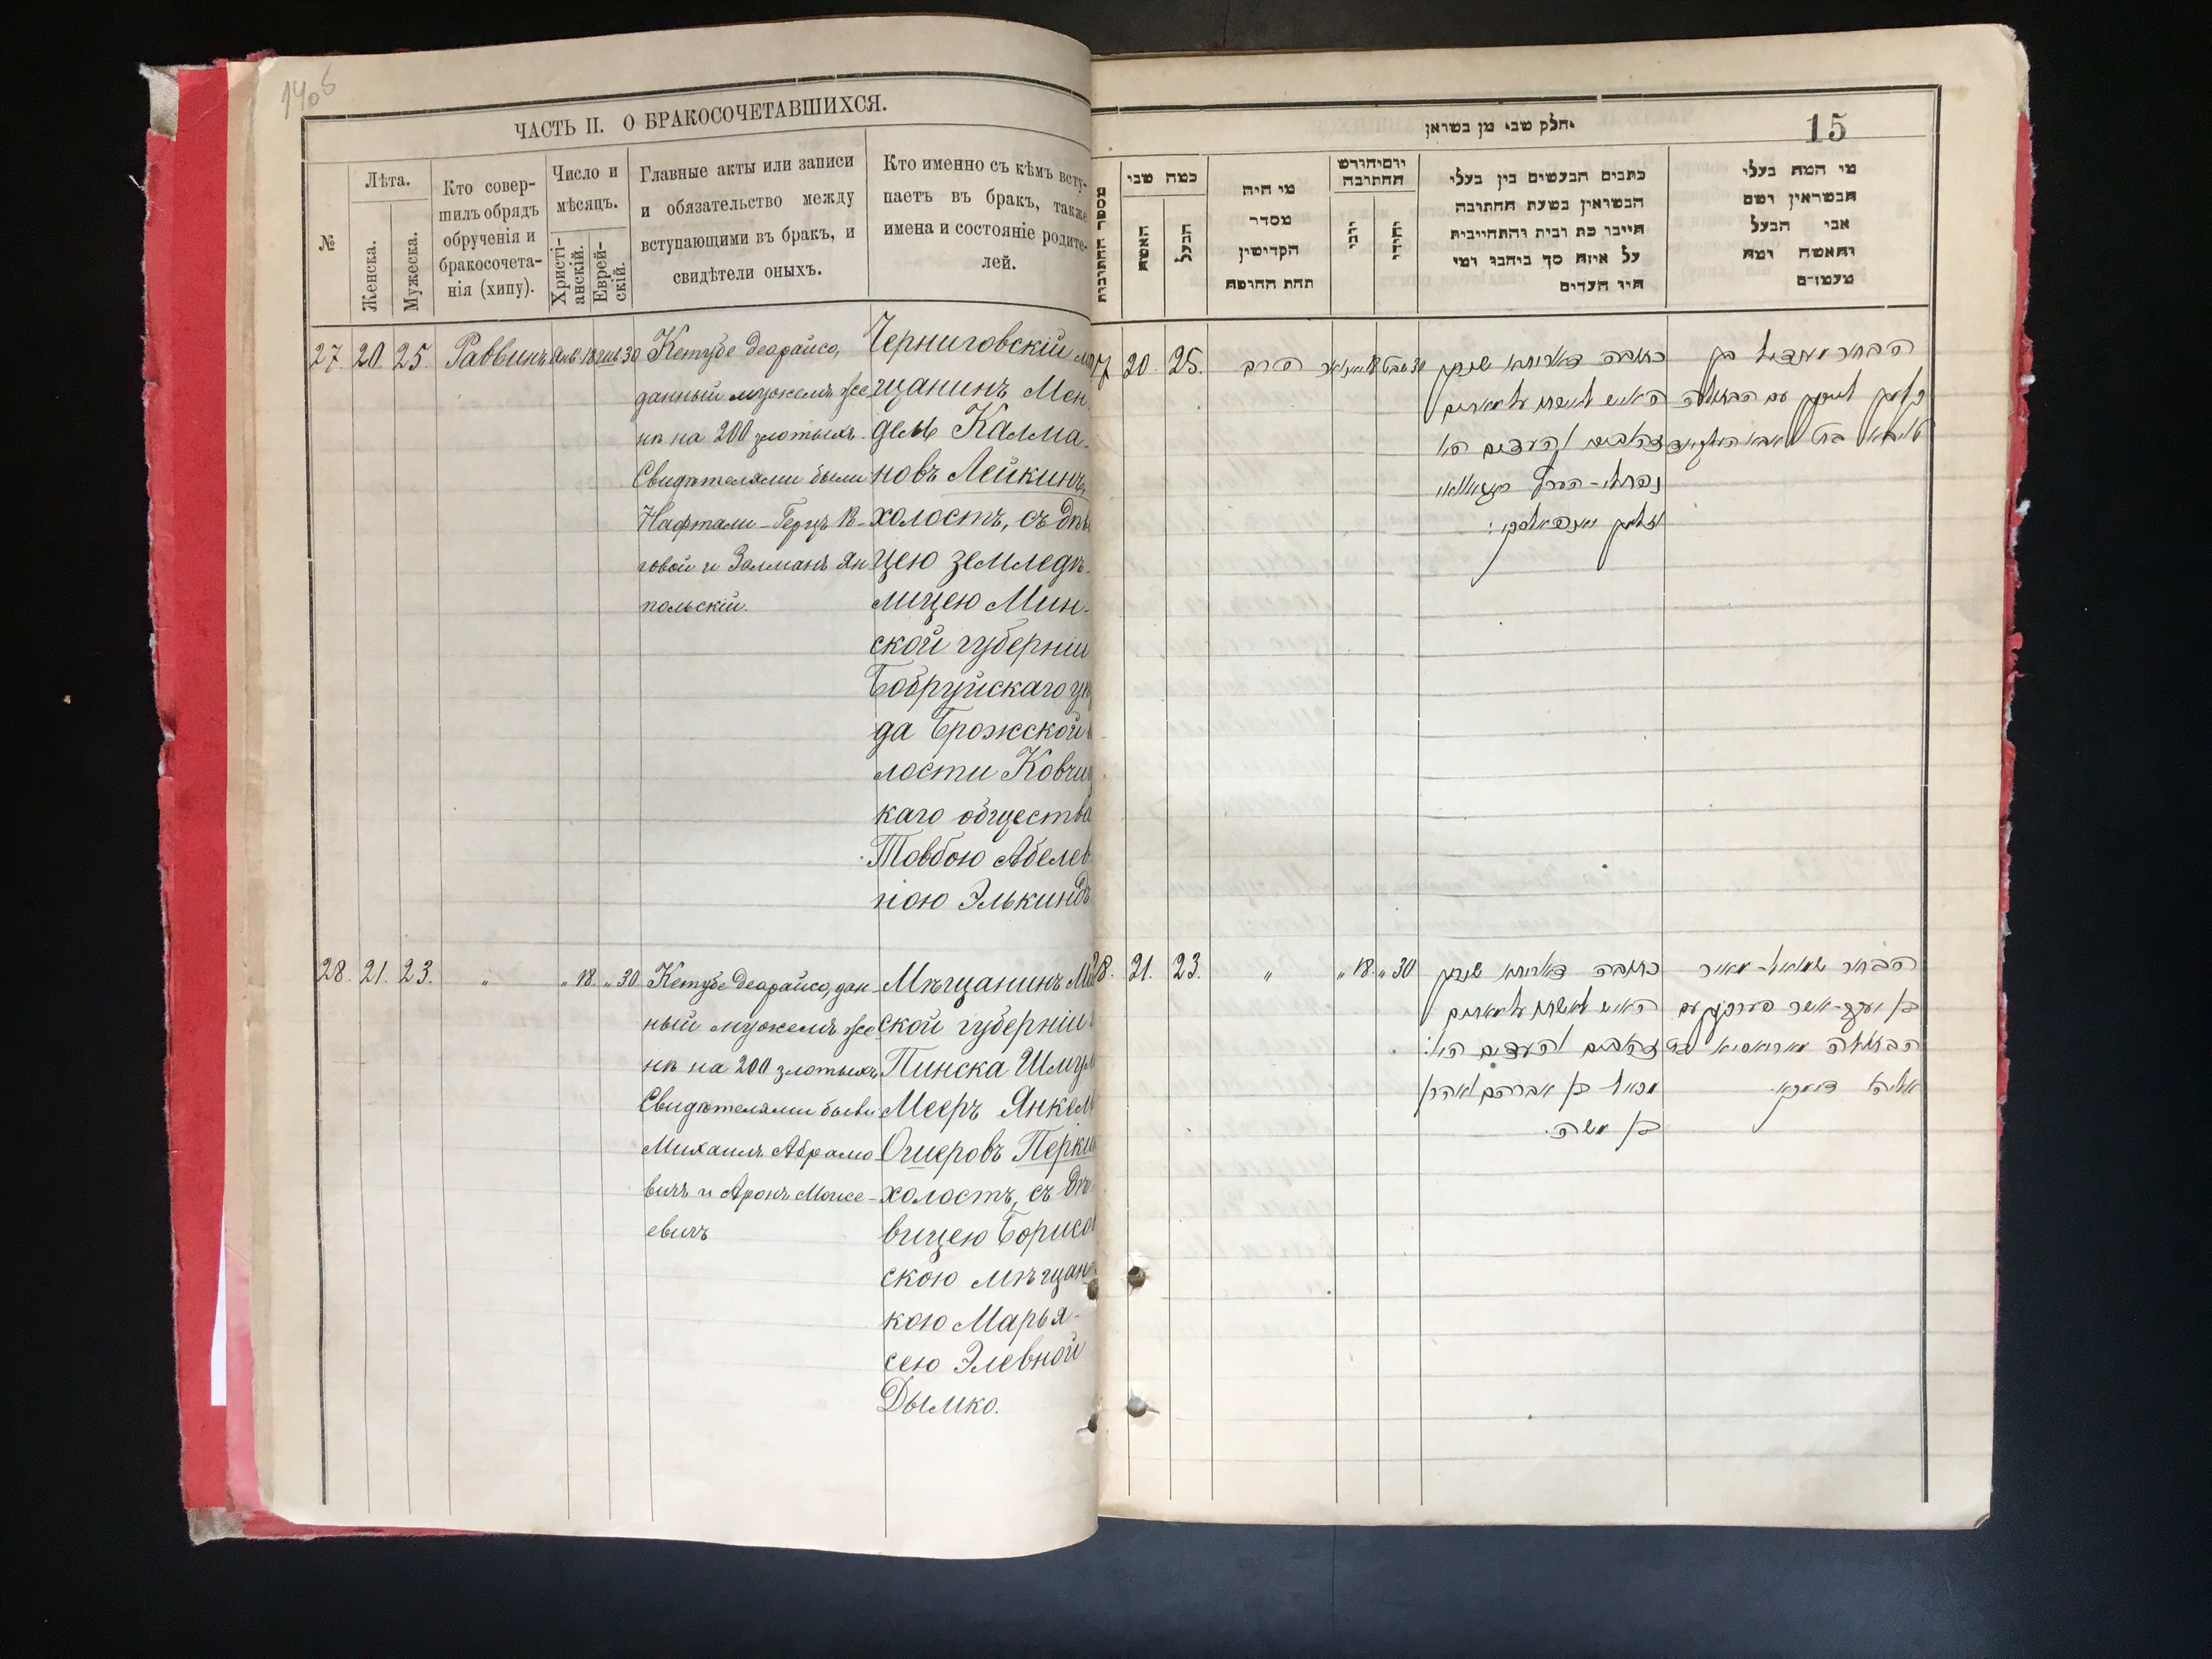 ЧАСТЬ II. О БРАКОСОЧЕТАВШИХСЯ.
№
Лѣта.
Женска.
Мужеска.
Кто совер-
шилъ обрядъ
обрученія и
бракосочета-
нія (хипу).
Число и
мѣсяцъ.
Христі-
анскій.
Еврей-
скій.
Главные акты или записи
и обязательство между
вступающими въ бракъ, и
свидѣтели оныхъ.
Кто именно съ кѣмъ всту-
паетъ въ бракъ, также
имена и состояніе родите-
лей.
27. 20. 25. Раввинъ Янв. 18 30
Кетубе деорайсо,
данный мужемъ же
нѣ на 200 злотыхъ.
Свидѣтелями были
Нафтали-Герцъ
говой и Залманъ Ян
польскій.
Черниговскій
щанинъ Мен-
дель Калма-
новъ Лейкинъ,
холостъ, съ дѣв
цею земледѣ-
лицею Мин-
ской губерніи
Бобруйскаго уѣ
да Брожской
лости Ковчиц
каго общества
Товбою Абелев
ною Элькиндъ
28. 21. 23. „ „ 18. „ 30
Кетубе деорайсо, дан-
ный мужемъ же
нѣ на 200 злотыхъ
Свидѣтелями были
Михаилъ Абрамо
вичъ и Аронъ Моисе-
евичъ
Мѣщанинъ Ми
ской губерніи
Пинска Шмуй
Мееръ Янкел
Ошеровъ Перки
холостъ, съ дѣ-
вицею Борисо
скою мѣщан
кою Марья-
сею Элевной
Дымко.
15
חלק שני מן בשואן
מספר החתונות
כמה שני
האשה
הבעל
מי היה
מסדר
הקדישין
תחת החופה
יום וחורש
החתונה
יוני
יהודי
כתבים הנעשים בין בעלי
הנשואין בשעת החתונה
היינו כת ובית והתחייבות
על איזה סך ביניהם ומי
היו העדים
מי המה בעלי
הנשואין ושם
אבי הבעל
והאשה ומה
מעמדם
7 20. 25. הרב 18 30
כתובה דאורייתא שנתן
האיש לאשתו על מאתים
זהובים והעדים הם
נפתלי-הרץ
וזלמן יאנפאלסקי:
הבחור מענדיל בן
קלמן לייקין עם הבתולה
טויבא בת אבא עלקינד
8. 21. 23. „ „ 18. „ 30
כתובה דאורייתא שנתן
האיש לאשתו על מאתים
זהובים והעדים הם:
מיכאל בן אברהם ואהרן
בן משה.
הבחור שמואל-מאיר
בן יענקל-אשר פערקין עם
הבתולה מאריאסיא בת
אליהו דימקא.